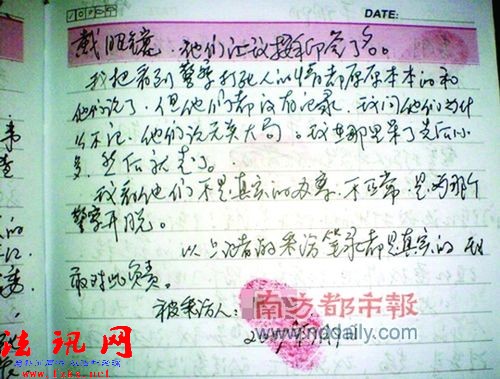 DATE:
戴眼镜，他们让我按印签了名。
我把看到警察打死人的情都原原本本的和
他们说了，但他们都没有记录，我问他们为什
么不记，他们说无关大局。我在那里呆了
多，然后就走了。
我看他们不是真实的办案，不正常，是为那个
警察开脱。
以上记者的采访笔录都是真实的 我
敢对此负责。
被采访人：
南方都市報
www.nddaily.com
法讯网